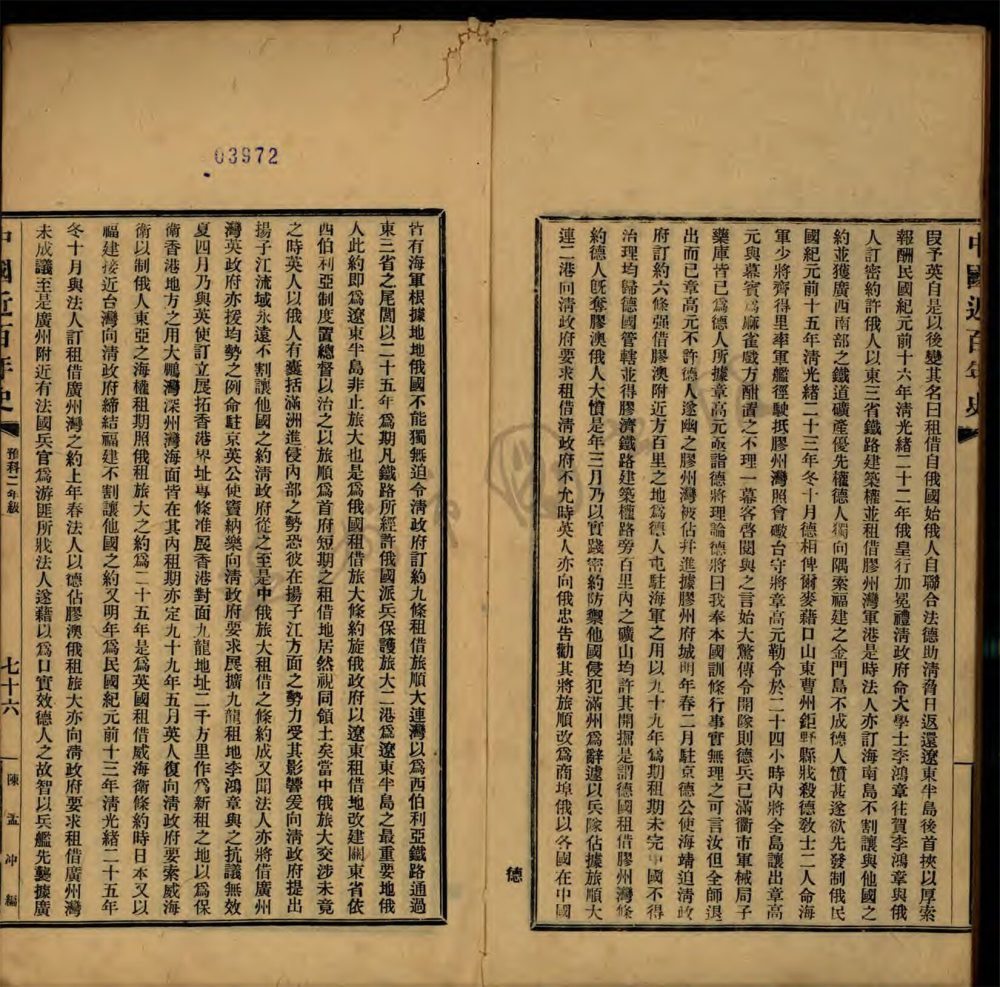 中國近百年史
段予英自是以後變其名曰租借自俄國始俄人自聯合法德助清脅日返還遼東半島後首挾以厚索
報酬民國紀元前十六年清光緒二十二年俄皇行加冕禮清政府命大學士李鴻章往賀李鴻章與俄
人訂密約許俄人以東三省鐵路建築權並租借膠州灣軍港是時法人亦訂海南島不割讓與他國之
約並獲廣西南部之鐵道礦產優先權德人獨向隅索福建之金門島不成德人憤甚遂欲先發制俄民
國紀元前十五年清光緒二十三年冬十月德相俾爾麥藉口山東曹州鉅野縣戕殺德教士二人命海
軍少將齊得里率軍艦徑駛抵膠州灣照會礮台守將章高元勒令於二十四小時內將全島讓出章高
元與幕賓爲麻雀戲方酣置之不理一幕客啓閱與之言始大驚傳令開隊則德兵已滿衢市軍械局子
藥庫皆已爲德人所據章高元亟詣德將理論德將曰我奉本國訓條行事實無理之可言汝但全師退
出而已章高元不許德人遂幽之膠州灣被佔幷進據膠州府城明年春二月駐京德公使海靖迫淸政
府訂約六條强借膠澳附近方百里之地爲德人屯駐海軍之用以九十九年爲期租期未完中國不得
治理均歸德國管轄並得膠濟鐵路建築權路旁百里內之礦山均許其開掘是謂德國租借膠州灣條
約德人既奪膠澳俄人大憤是年三月乃以實踐密約防禦他國侵犯滿州爲辭遽以兵隊佔據旅順大
連二港向清政府要求租借清政府不允時英人亦向俄忠告勸其將旅順改爲商埠俄以各國在中國
德
03972
皆有海軍根據地俄國不能獨無迫令清政府訂約九條租借旅順大連灣以爲西伯利亞鐵路通過
東三省之尾閭以二十五年爲期凡鐵路所經許俄國派兵保護旅大二港爲遼東半島之最重要地俄
人此約即爲遼東半島非止旅大也是爲俄國租借旅大條約旋俄政府以遼東租借地改建關東省依
西伯利亞制度置總督以治之以旅順爲首府短期之租借地居然視同領土矣當中俄旅大交涉未竟
之時英人以俄人有囊括滿洲進侵內部之勢恐彼在揚子江方面之勢力受其影響爰向清政府提出
揚子江流域永遠不割讓他國之約清政府從之至是中俄旅大租借之條約成又聞法人亦將借廣州
灣英政府亦援均勢之例命駐京英公使竇納樂向清政府要求展擴九龍租地李鴻章與之抗議無效
夏四月乃與英使訂立展拓香港界址專條准展香港對面九龍地址二千方里作爲新租之地以爲保
衛香港地方之用大鵬灣深州灣海面皆在其內租期亦定九十九年五月英人復向清政府要索威海
衛以制俄人東亞之海權租期照俄租旅大之約爲二十五年是爲英國租借威海衛條約時日本又以
福建接近台灣向清政府締結福建不割讓他國之約又明年爲民國紀元前十三年清光緒二十五年
冬十月與法人訂租借廣州灣之約上年春法人以德佔膠澳俄租旅大亦向清政府要求租借廣州灣
未成議至是廣州附近有法國兵官爲游匪所戕法人遂藉以爲口實效德人之故智以兵艦先襲據廣
中國近百年史
預科二年級
七十六
陳孟沖編